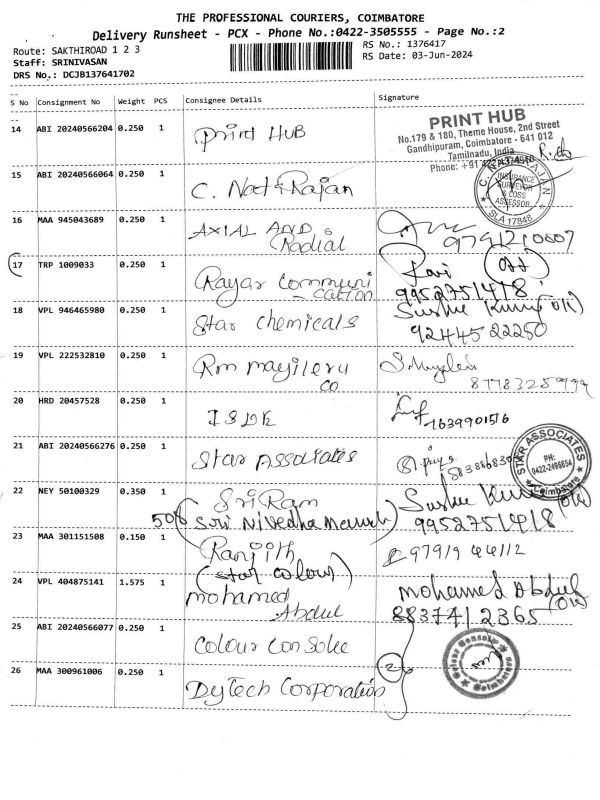 THE PROFESSIONAL COURIERS, COIMBATORE
Delivery Runsheet - PCX - Phone No.:0422-3505555 - Page No.:2
Route: SAKTHIROAD 1 2 3
RS No.: 1376417
Staff: SRINIVASAN
RS Date: 03-Jun-2024
DRS No.: DCJB137641702
S No Consignment No Weight PCS Consignee Details Signature
14 ABI 20240566204 0.250 1 Print HUB
PRINT HUB
No.179 & 180, Theme House, 2nd Street
Gandhipuram, Coimbatore - 641 012
Tamilnadu, India
Phone: +91
15 ABI 20240566064 0.250 1
C. Nat & Rajan
INSURANCE
SURVEYOR
& LOSS
ASSESSOR
SLA 17848
16 MAA 945043689 0.250 1 AXIAL AND
Radial
9791210007
17 TRP 1009033 0.250 1 Ravi
Rayar Communi
- cation
9952751418
18 VPL 946465980 0.250 1
Star chemicals
9244522250
19 VPL 222532810 0.250 1
Rm mayileru
co
20 HRD 20457528 0.250 1
7639901516
21 ABI 20240566276 0.250 1
Star Associates
STAR ASSOCIATES
PH:
Coimbatore
22 NEY 50100329 0.350 1 Sri Ram
9952751418
23 MAA 301151508 0.150 1 Ranjith
(star colour)
24 VPL 404875141 1.575 1 mohamed
Abdul
mohamed Abdul
8837412365
25 ABI 20240566077 0.250 1
Colour Consolee
26 MAA 300961006 0.250 1
Dytech Corporation